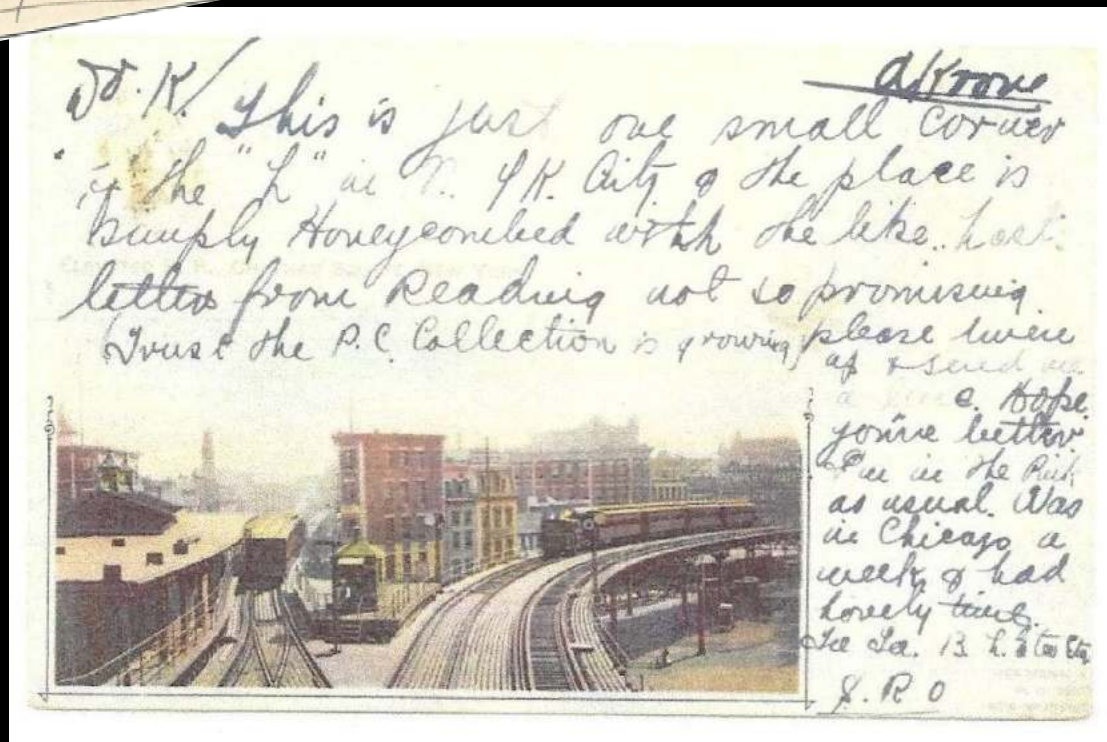 Akrone
Dr. K/ This is just one small corner
of the "L" in N. YK. City & the place is
simply Honeycombed with the like. Last
letter from Reading not so promising
Trust the P.C. Collection is growing please
up & send me
a
Hope
you're better
I'm in the Pink
as usual. Was
in Chicago a
week & had
lovely time.
B. L.
S. R O